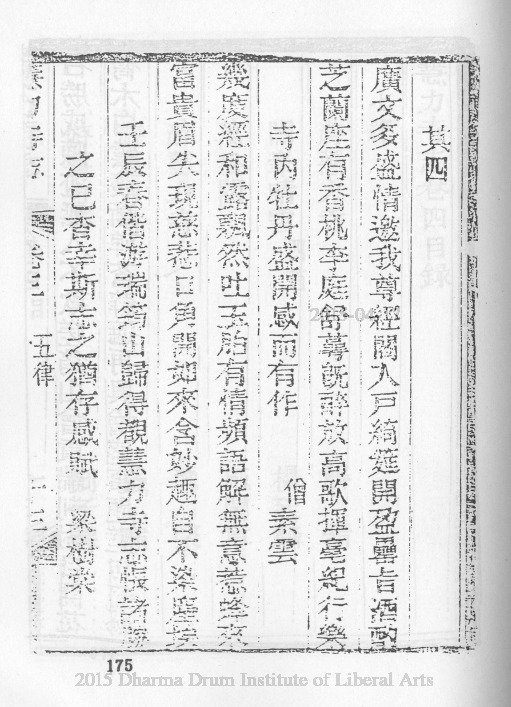 其四
廣文多盛情邀我尊經閣入戶綺筵開盈罍旨酒酌
芝蘭座有香桃李庭舒萼旣醉放高歌揮毫紀行樂
寺內牡丹盛開感而有作 僧素雲
幾度經和露飄然吐玉胎有情頻語解無意惹蜂來
富貴眉失現慈菴口角開如來含妙趣自不染塵埃
壬辰春偕游瑞筍山歸得觀慧力寺志悵諸
之已杳幸斯志之猶存感賦 梁樹棠
慧力寺志 卷三 五律
175
2015 Dharma Drum Institute of Liberal Arts